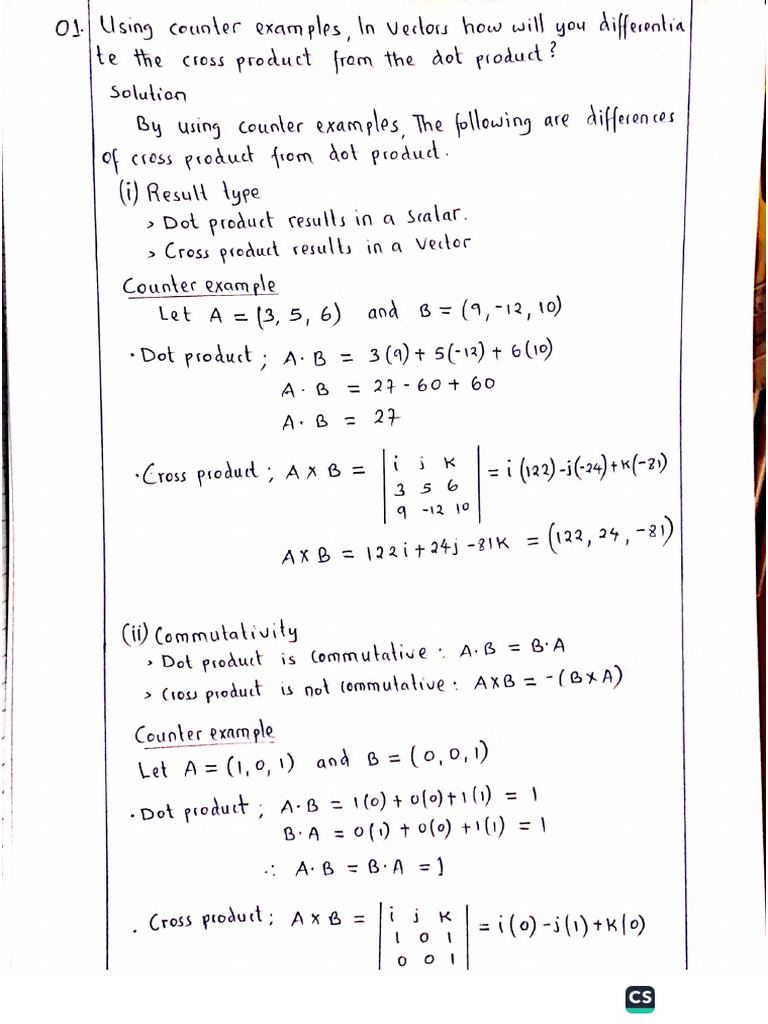 01. Using counter examples, In Vectors how will you differentia
te the cross product from the dot product?
Solution
By using counter examples, The following are differences
of cross product from dot product.
(i) Result type
> Dot product results in a scalar.
> Cross product results in a vector
Counter example
Let A = (3, 5, 6) and B = (9, -12, 10)
• Dot product; A · B = 3(9) + 5(-12) + 6(10)
A · B = 27 - 60 + 60
A · B = 27
• Cross product; A X B = | i j k | = i (122) -j(-24) + k(-81)
3 5 6
9 -12 10
A X B = 122i + 24j -81k = (122, 24, -81)
(ii) Commutativity
> Dot product is commutative: A·B = B·A
> Cross product is not commutative: AXB = -(BXA)
Counter example
Let A = (1, 0, 1) and B = (0, 0, 1)
• Dot product; A·B = 1(0) + 0(0) + 1(1) = 1
B·A = 0(1) + 0(0) + 1(1) = 1
∴ A·B = B·A = 1
• Cross product; A X B = | i j k | = i(0) -j(1) + k(0)
1 0 1
0 0 1
CS